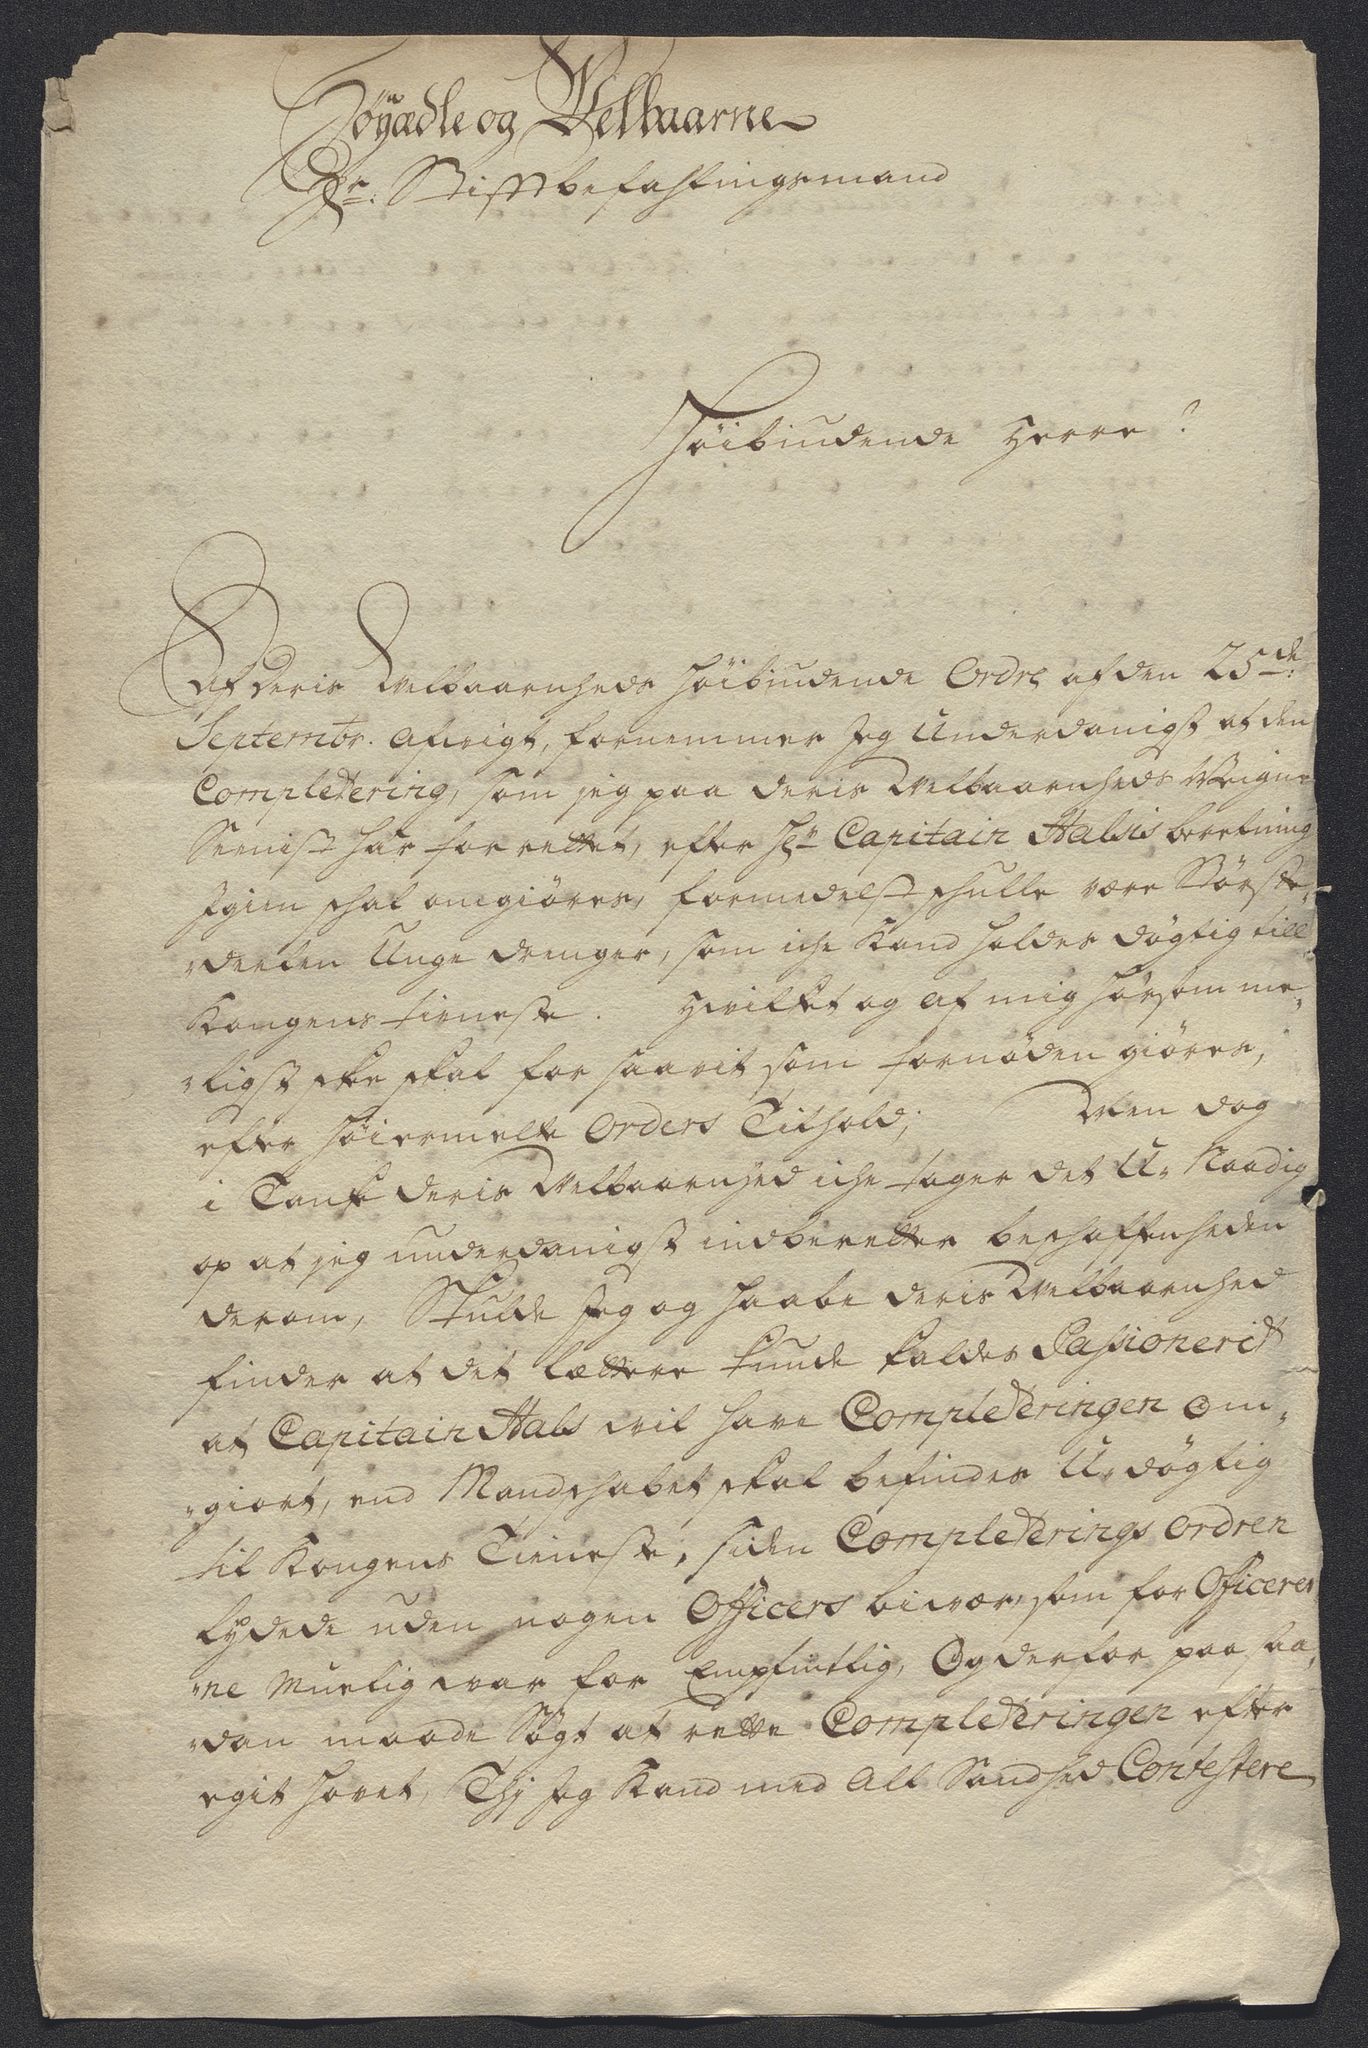 Høyædle og Velbaarne
Hr. Stiftbefahlingsmand
Høibiudende Herre!
Af Deris Velbaarnheds høibiudende Ordre af den 25de
Septembr. afvigt, fornemmer Jeg Underdanigst at den
Completering, som jeg paa Deris Velbaarnheds Veigne
Seenist har forrettet, efter Hr. Capitain Hals's beretning
Igien schal omgiøres, formedelst schulle være Størstee
deelen Unge drenger, som iche Kand holdes døgtig till
Kongens tieneste. Hvilket og af mig hørsomme¬
ligst skee skal for saavit som fornøden giøres,
efter høiermelte Orders Tilhold; Men dog
i Tanke Deris Velbaarnhed iche tager det U-Naadig
op at jeg underdanigst indberetter beschaffenheden
derom, Skulde Jeg og haabe Deris Velbaarnhed
finder at det lættere kunde kaldes Passionerit
at Capitain Hals vil have Completeringen om¬
giort, end Mandschabet skal befindes U-døgtig
til Kongens Tieneste, siden Completerings Ordren
lydede uden nogen Officers bivær, som for Officerer
ne Muelig var for Empfintlig, Og derfor paa saa¬
dan maade Søgt at rette Completeringen efter
egit hovet, Thj Jeg Kand med All Sandhed Contestere